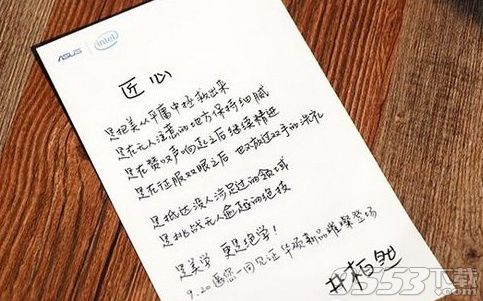 ASUS intel
匠心
是把美从平庸中拯救出来
是在无人注意的地方保持细腻
是在赞叹声响起之后继续精进
是在征服双眼之后 也不放过双手的洗礼
是抵达没人涉足过的领域
是挑战无人逾越的绝技
是美学 更是绝学!
9.20邀您一同见证 华硕新品璀璨登场
井柏然
9553下载